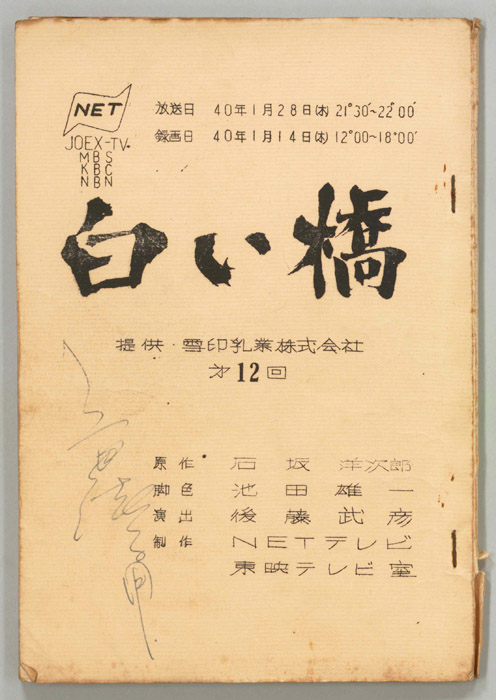 NET
JOEX-TV
MBS
KBC
NBN
放送日 40年1月28日(木) 21°30′~22°00′
録画日 40年1月14日(木) 12°00~18°00′
白い橋
提供・雪印乳業株式会社
才12回
原作 石坂洋次郎
脚色 池田雄一
演出 後藤武彦
制作 NETテレビ
東映テレビ室